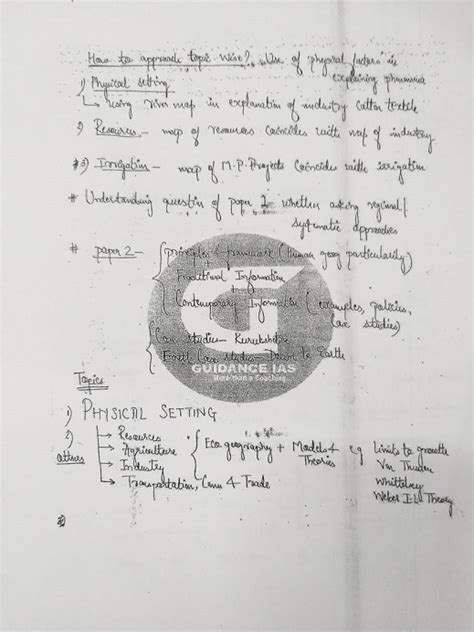 How to approach topic wise? Use of physical factors in
explaining phenomena
1) Physical setting
↳ using river map in explanation of industry cotton textile
2) Resources - map of resources coincides with map of industry
*3) Irrigation - map of M.P. Projects coincides with irrigation
# Understanding question of paper 2 - whether asking regional/
systematic approaches
# paper 2 - principles & framework (human geog particularity)
Traditional Information
+
Contemporary Information (examples, policies,
case studies)
Case studies - Kurukshetra
Earth Case studies - Down to Earth
GUIDANCE IAS
More than a Coaching
Topics
1) PHYSICAL SETTING
2) → Resources
→ Agriculture { Eco geography + Models & e.g Limits to growth
→ Industry Theories Von Thunen
→ Transportation, Comm & Trade Whittlesey
Weber I.L. Theory
3)